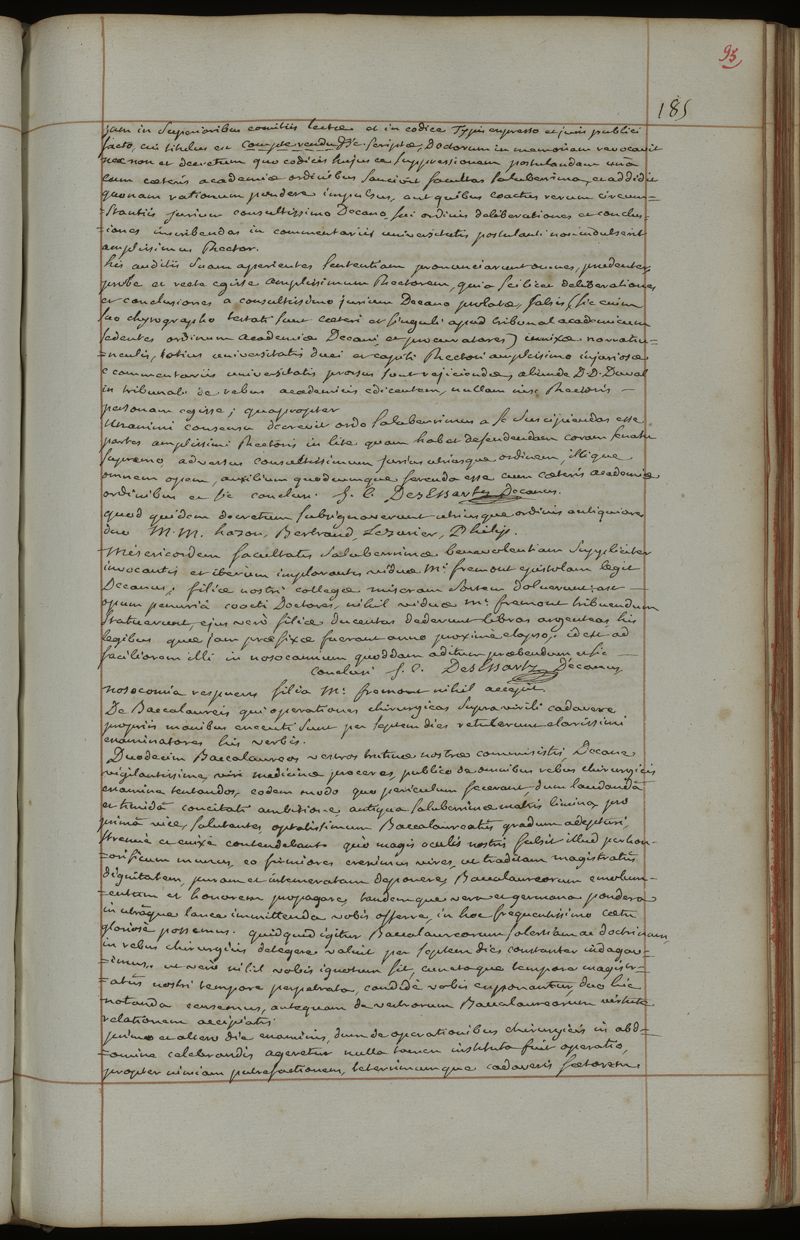 95
185
jam in Superioribus comitiis lectae et in codice Typis expresso et juris publici
facto, cui titulus est Compte rendu &c. scriptae, Doctorum in memoriam revocavit
nec non et decretum quo codicis hujus ce suppressionem postulandam unà
cum caeteris academiae ordinibus sancivit facultas saluberrima, et addidit
quonam rationum pondere impulsus, aut quibus coactus rerum circum=
=stantiis jurium consultissimo Decano, sui ordinis deliberationes et conclus=
=iones inscribendas in commentariis universitatis postulanti non indulserit
amplissimus Rector.
his auditis suam aperientes sententiam pronunciarunt omnes, prudenter,
probe et recte egisse amplissimum Rectorem, quia scilicet deliberationes
et conclusiones a consultissimo jurium Decano prolatae, falsis (sic enim
suo chyrographo testati sunt caeteri et singuli apud tribunal academicum
sedentes ordinum academiae Decani et procuratores) innixae narratiu=
=nculis, totius universitatis duci et capiti Rectori amplissimo injuriosae
e commentariis universitatis prorsus sunt rejiciendae, aliunde D. D. Duval
in tribunali de rebus academicis edicentem, nullam nisi Rectoris —
personam egisse; quapropter
Unanimi consensu decrevit ordo saluberrimus a se suscipiendas esse
partes amplissimi Rectoris in lite quam habet defendendam coram senatu
supremo adversus consultissimum jurius utriusque ordinem, illique
omnem opem, auxilium quodcumque ferenda esse cum caeteris academiae
ordinibus et sic conclusi. J. C. DesEssartz Decanus.
quod quidem decretum subsignaverunt utriusque ordinis antiquiore
duo M. M. hazon, Bertrand, Lezurier, Philip.
Misericordem facultatis saluberrimae benevolentiam suppliciter
invocantis et iterum implorantis viduae Mi. fremont epistolam legit
Decanus; filiae nostri collegae miseram sortem doluerunt; ast —
opum penuriâ coacti Doctores, nihil viduae Mi. fremont tribuendum
statuerunt, ejus verò filiae ducentas dederunt libras argenteas his
legibus quae jam praefixae fuerant anno proxime elapso, id est ad
faciliorem illi in nosocomium quoddam aditum praebendum et sic —
conclusi J. C. DesEssartz Décanus
nosocomia respuens filia Mi. fremont nihil accepit.
De Baccalaureis qui operationes chirurgicas supra virili cadavere
propriis manibus executi sunt per septem dies retulerunt clarissimi
examinatores his verbis.
Duodecim Baccalaureos vestros trutinae nostrae commisistis, Decane
vigilantissime, viri medicinae proceres, publico de omnibus rebus chirurgicis
examine tentandos, eodem modo quo periculum fecerant dum laudandâ
et timidâ concitati ambitione antiqua saluberrimae matris limina pro
primâ vice, salutantes, optatissimum Baccalaureatûs gradum adepturi,
strenuè et enixè contendebant. quò magis oculis nostris fulsit illud perhon=
=orificum munus, eo firmiores creximus vires, ut traditam magistratûs
dignitatem, puram et intemeratam deponere, Baccalaureorum emolum=
=entum et honorem propagare, tandemque vera et germana pondera
in utrâque lance immittenda vobis offerre, in hoc frequentissimo coetu
gloriosè possemus. quidquid igitur Baccalaureorum solertiam ac doctrinam,
in rebus chirurgicis detegere valuit per septem dies constanter indagav=
=imus. ut vero nihil vobis ignotum sit, cunctaque tempora magistr=
=atûs nostri tempore perpetrata, candidè vobis exponantur duo hic
notanda censemus, antequam de vestrorum Baccalaureorum virtute
relationem accipiatis.
primo et altero die examinis, dum de operationibus chirurgicis in abd=
=omine celebrandis ageretur nulla tamen instituta fuit operatio,
propter nimiam putrefactionem, teterrimumque cadaveris foetorem.